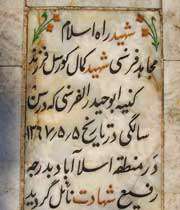 شهید راه اسلام
مجاهد فرنسی شهید کمال کوسل فرزند
کنیه ابوحیدر الفرنسی که در سن
سالگی در تاریخ ۵ـ۵ـ۱۳۶۷
در منطقه اسلام آباد بدرجه
رفیع شهادت نائل گردید